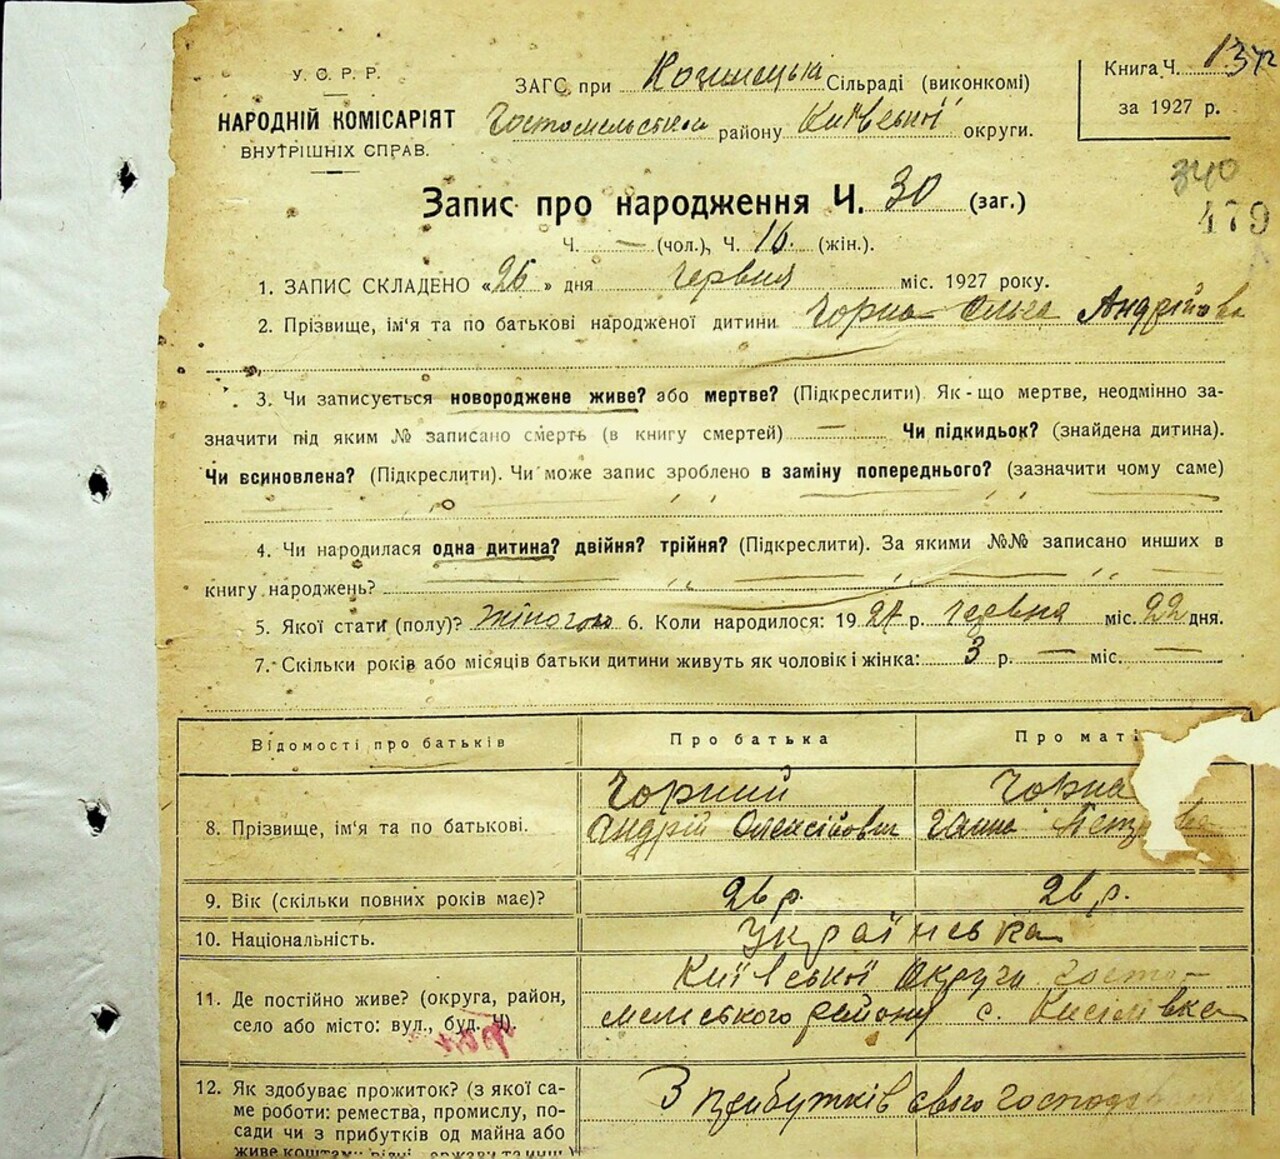 У. С. Р. Р.
НАРОДНІЙ КОМІСАРІЯТ
ВНУТРІШНІХ СПРАВ.
ЗАГС при Сільраді (виконкомі)
Гостомельського району Київської округи.
Книга Ч.
за 1927 р.
340
479
Запис про народження Ч. 30 (заг.)
Ч. — (чол.), Ч. 16. (жін.).
1. ЗАПИС СКЛАДЕНО «26» дня червня міс. 1927 року.
2. Прізвище, ім'я та по батькові народженої дитини Чорна Ольга Андріївна
3. Чи записується новороджене живе? або мертве? (Підкреслити). Як-що мертве, неодмінно за-
значити під яким № записано смерть (в книгу смертей) — Чи підкидьок? (знайдена дитина).
Чи всиновлена? (Підкреслити). Чи може запис зроблено в заміну попереднього? (зазначити чому саме)
4. Чи народилася одна дитина? двійня? трійня? (Підкреслити). За якими №№ записано инших в
книгу народжень?
5. Якої стати (полу)? жіночої 6. Коли народилося: 1927 р. червня міс. 22 дня.
7. Скільки років або місяців батьки дитини живуть як чоловік і жінка: 3 р. — міс. —
Відомості про батьків Про батька Про маті
8. Прізвище, ім'я та по батькові. Чорний Чорна
Андрій Олексійович Ганна
9. Вік (скільки повних років має)? 26 р. 26 р.
10. Національність. Українська
11. Де постійно живе? (округа, район, Київської Округи Госто-
село або місто: вул., буд. Ч). мельського району с.
12. Як здобуває прожиток? (з якої са- З прибутків свого
ме роботи: ремества, промислу, по-
сади чи з прибутків од майна або
живе коштами рідні, держави та инш.)